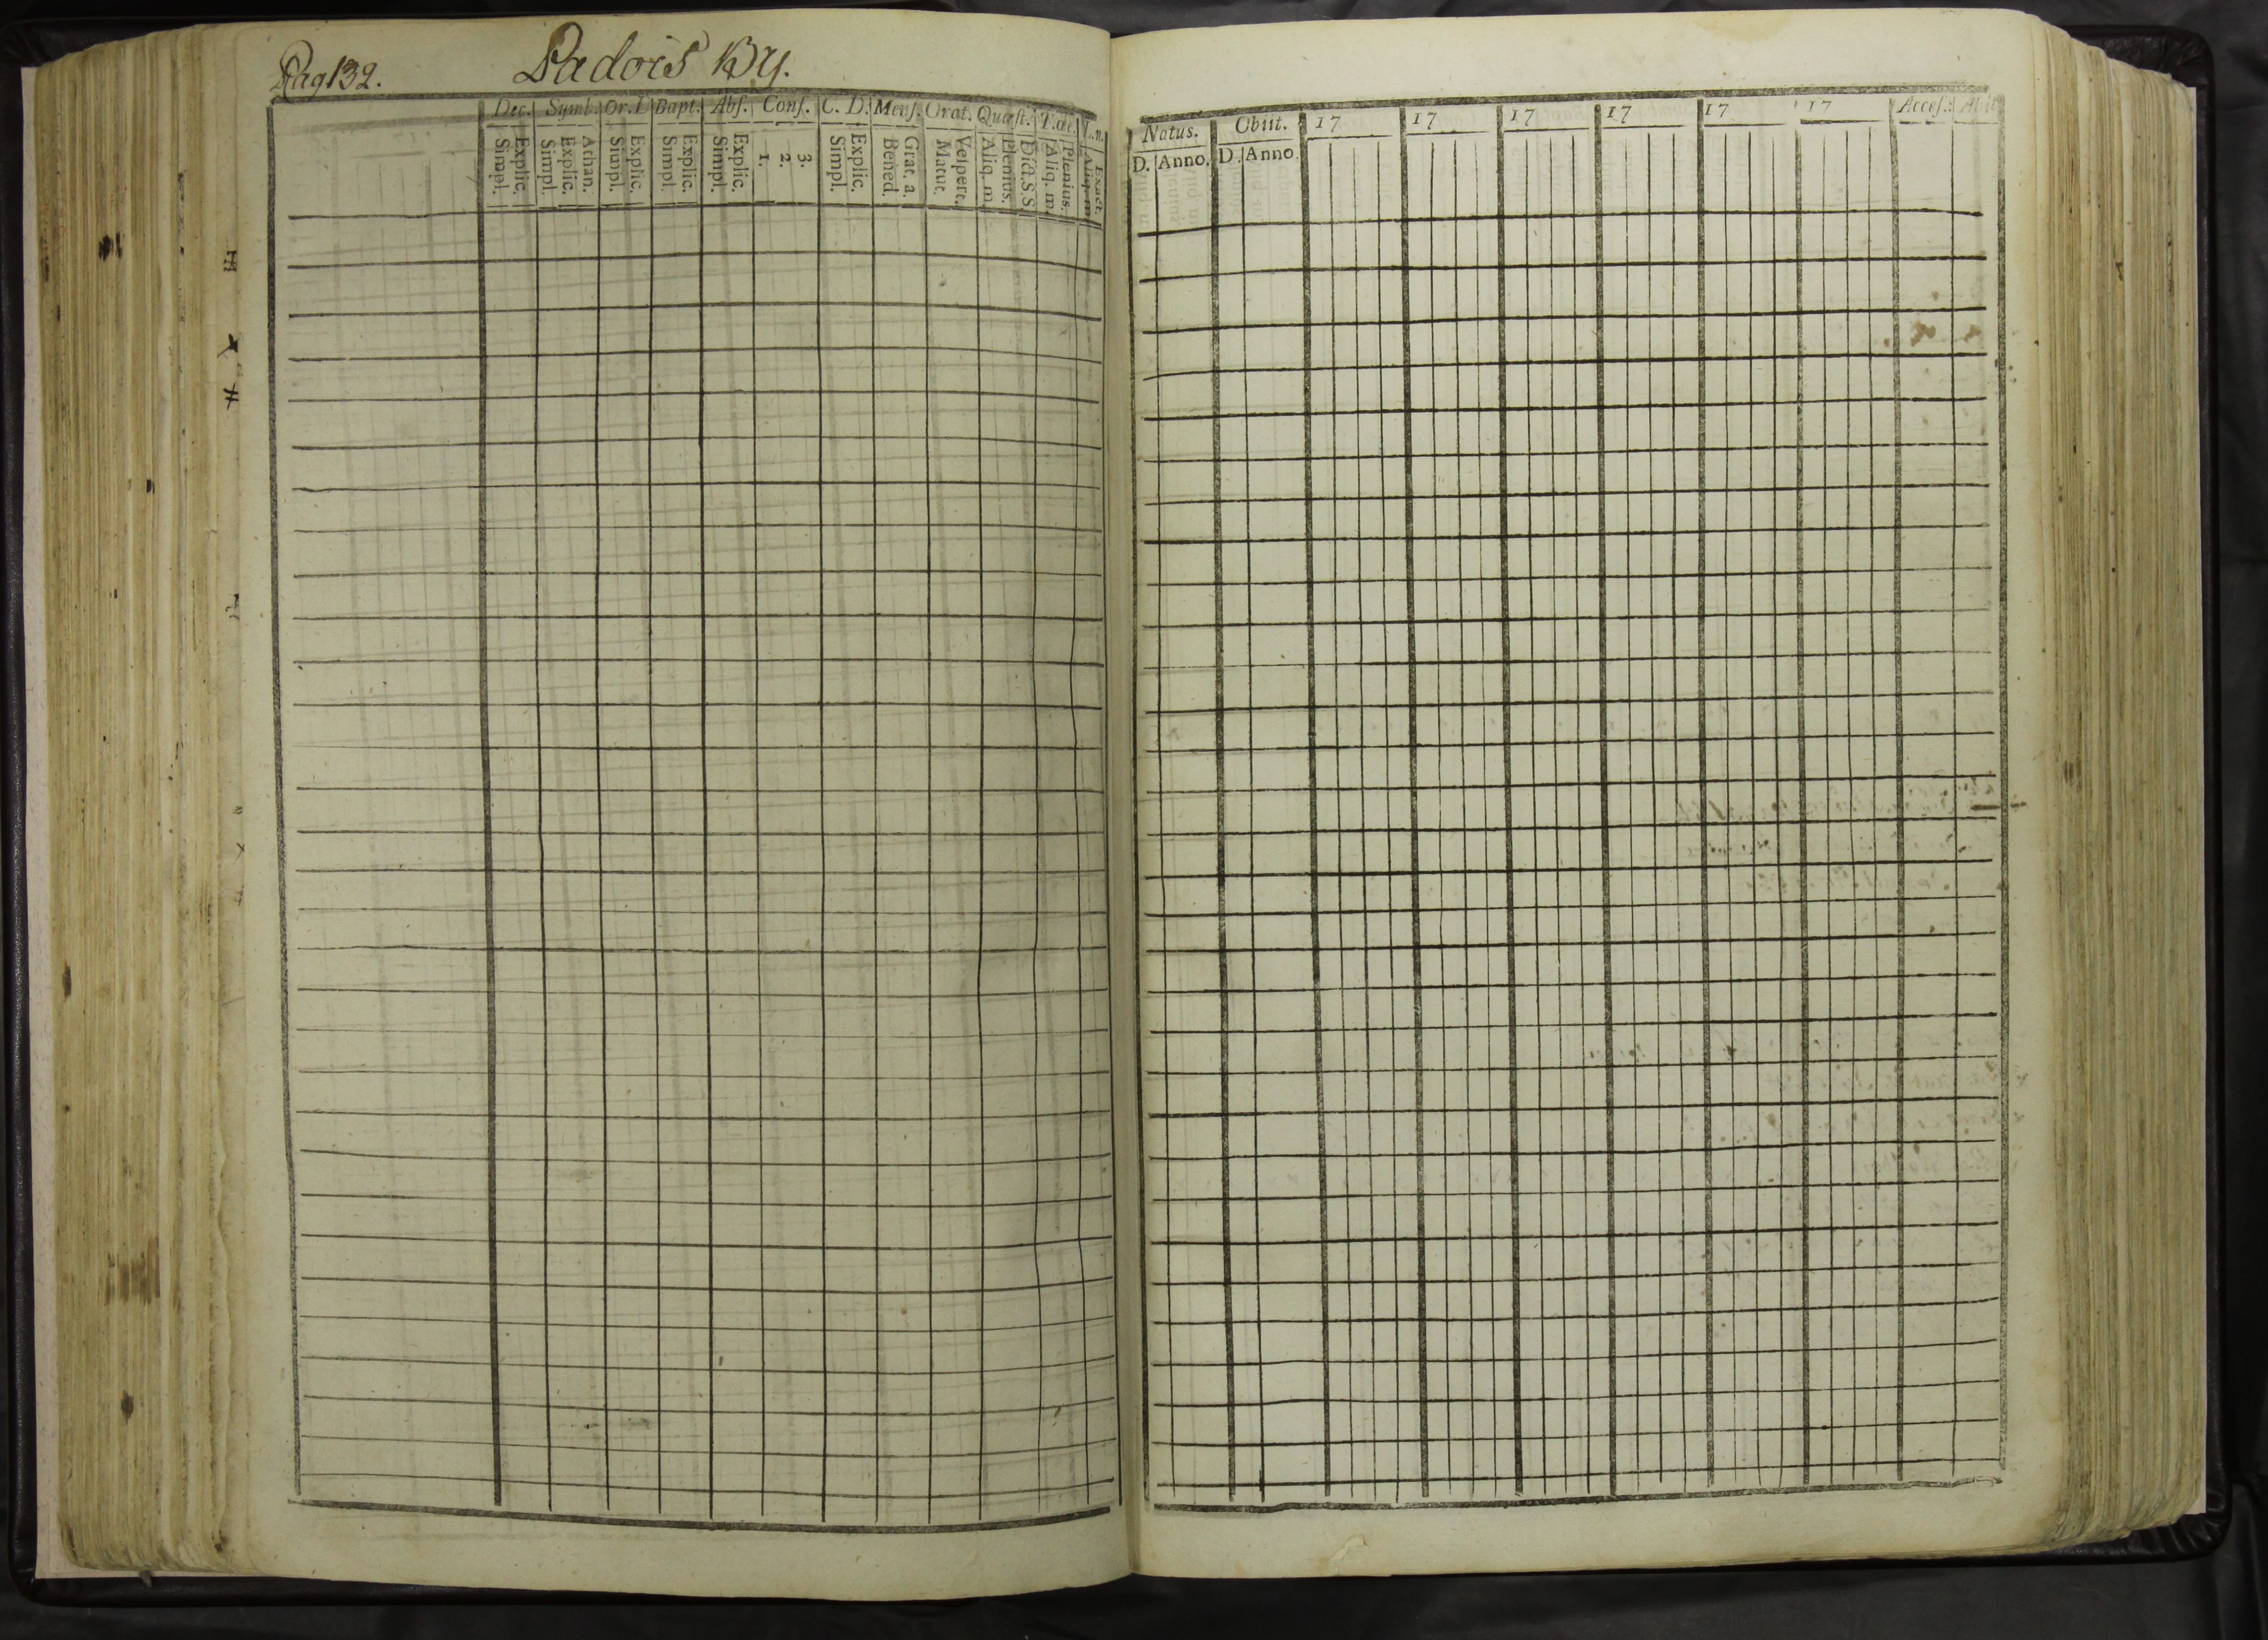 Pag 132. Padois By.
Dec. Symb. Or. D Bapt. Abs. Conf. C. D. Mens. Orat. Quæst. T. œc. L. n.
Simpl. Explic. Simpl. Explic. Athan. Simpl. Explic. Simpl. Explic. Simpl. Explic. 1. 2. 3. Simpl. Explic. Bened. Grat. a. Matut. Vespert. Aliq. m. Plenius. Dict. S. S. Aliq. m. Plenius. Aliq. m. Exact.
Natus. Obiit. 17 17 17 17 17 17 Acces. Abiit
D. Anno. D. Anno.